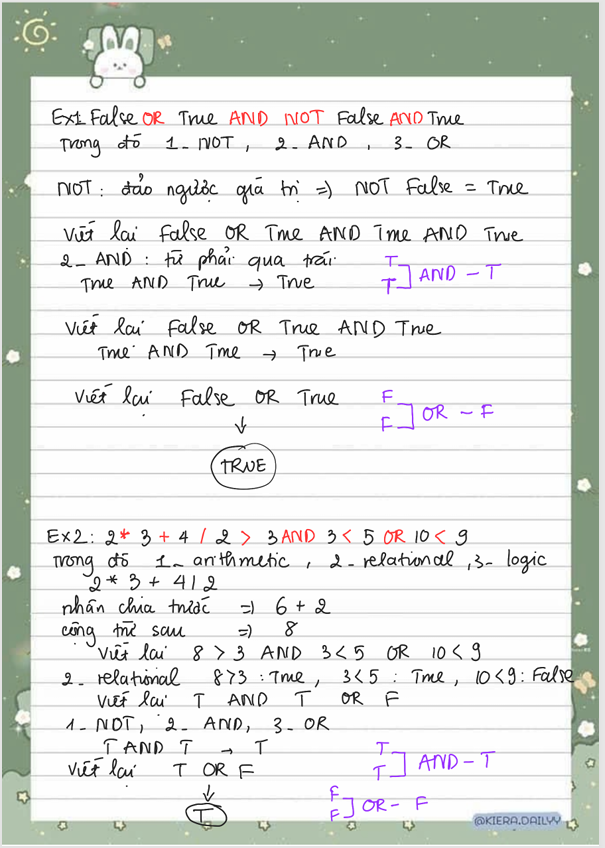 Ex1: False OR True AND NOT False AND True
Trong đó 1_ NOT, 2_ AND, 3_ OR
NOT: đảo ngược giá trị => NOT False = True
Viết lại False OR True AND True AND True
2_ AND: từ phải qua trái
True AND True → True
T
T ] AND - T
Viết lại False OR True AND True
True AND True → True
Viết lại False OR True
F
F ] OR - F
↓
TRUE
Ex2: 2* 3 + 4 / 2 > 3 AND 3 < 5 OR 10 < 9
Trong đó 1_ arithmetic, 2_ relational, 3_ logic
2* 3 + 4 / 2
nhân chia trước => 6 + 2
cộng trừ sau => 8
Viết lại 8 > 3 AND 3 < 5 OR 10 < 9
2_ relational 8>3: True, 3<5: True, 10<9: False
Viết lại T AND T OR F
1_ NOT, 2_ AND, 3_ OR
T AND T → T
T
T ] AND - T
Viết lại T OR F
F
F ] OR - F
↓
T
@KIERA.DAILYY